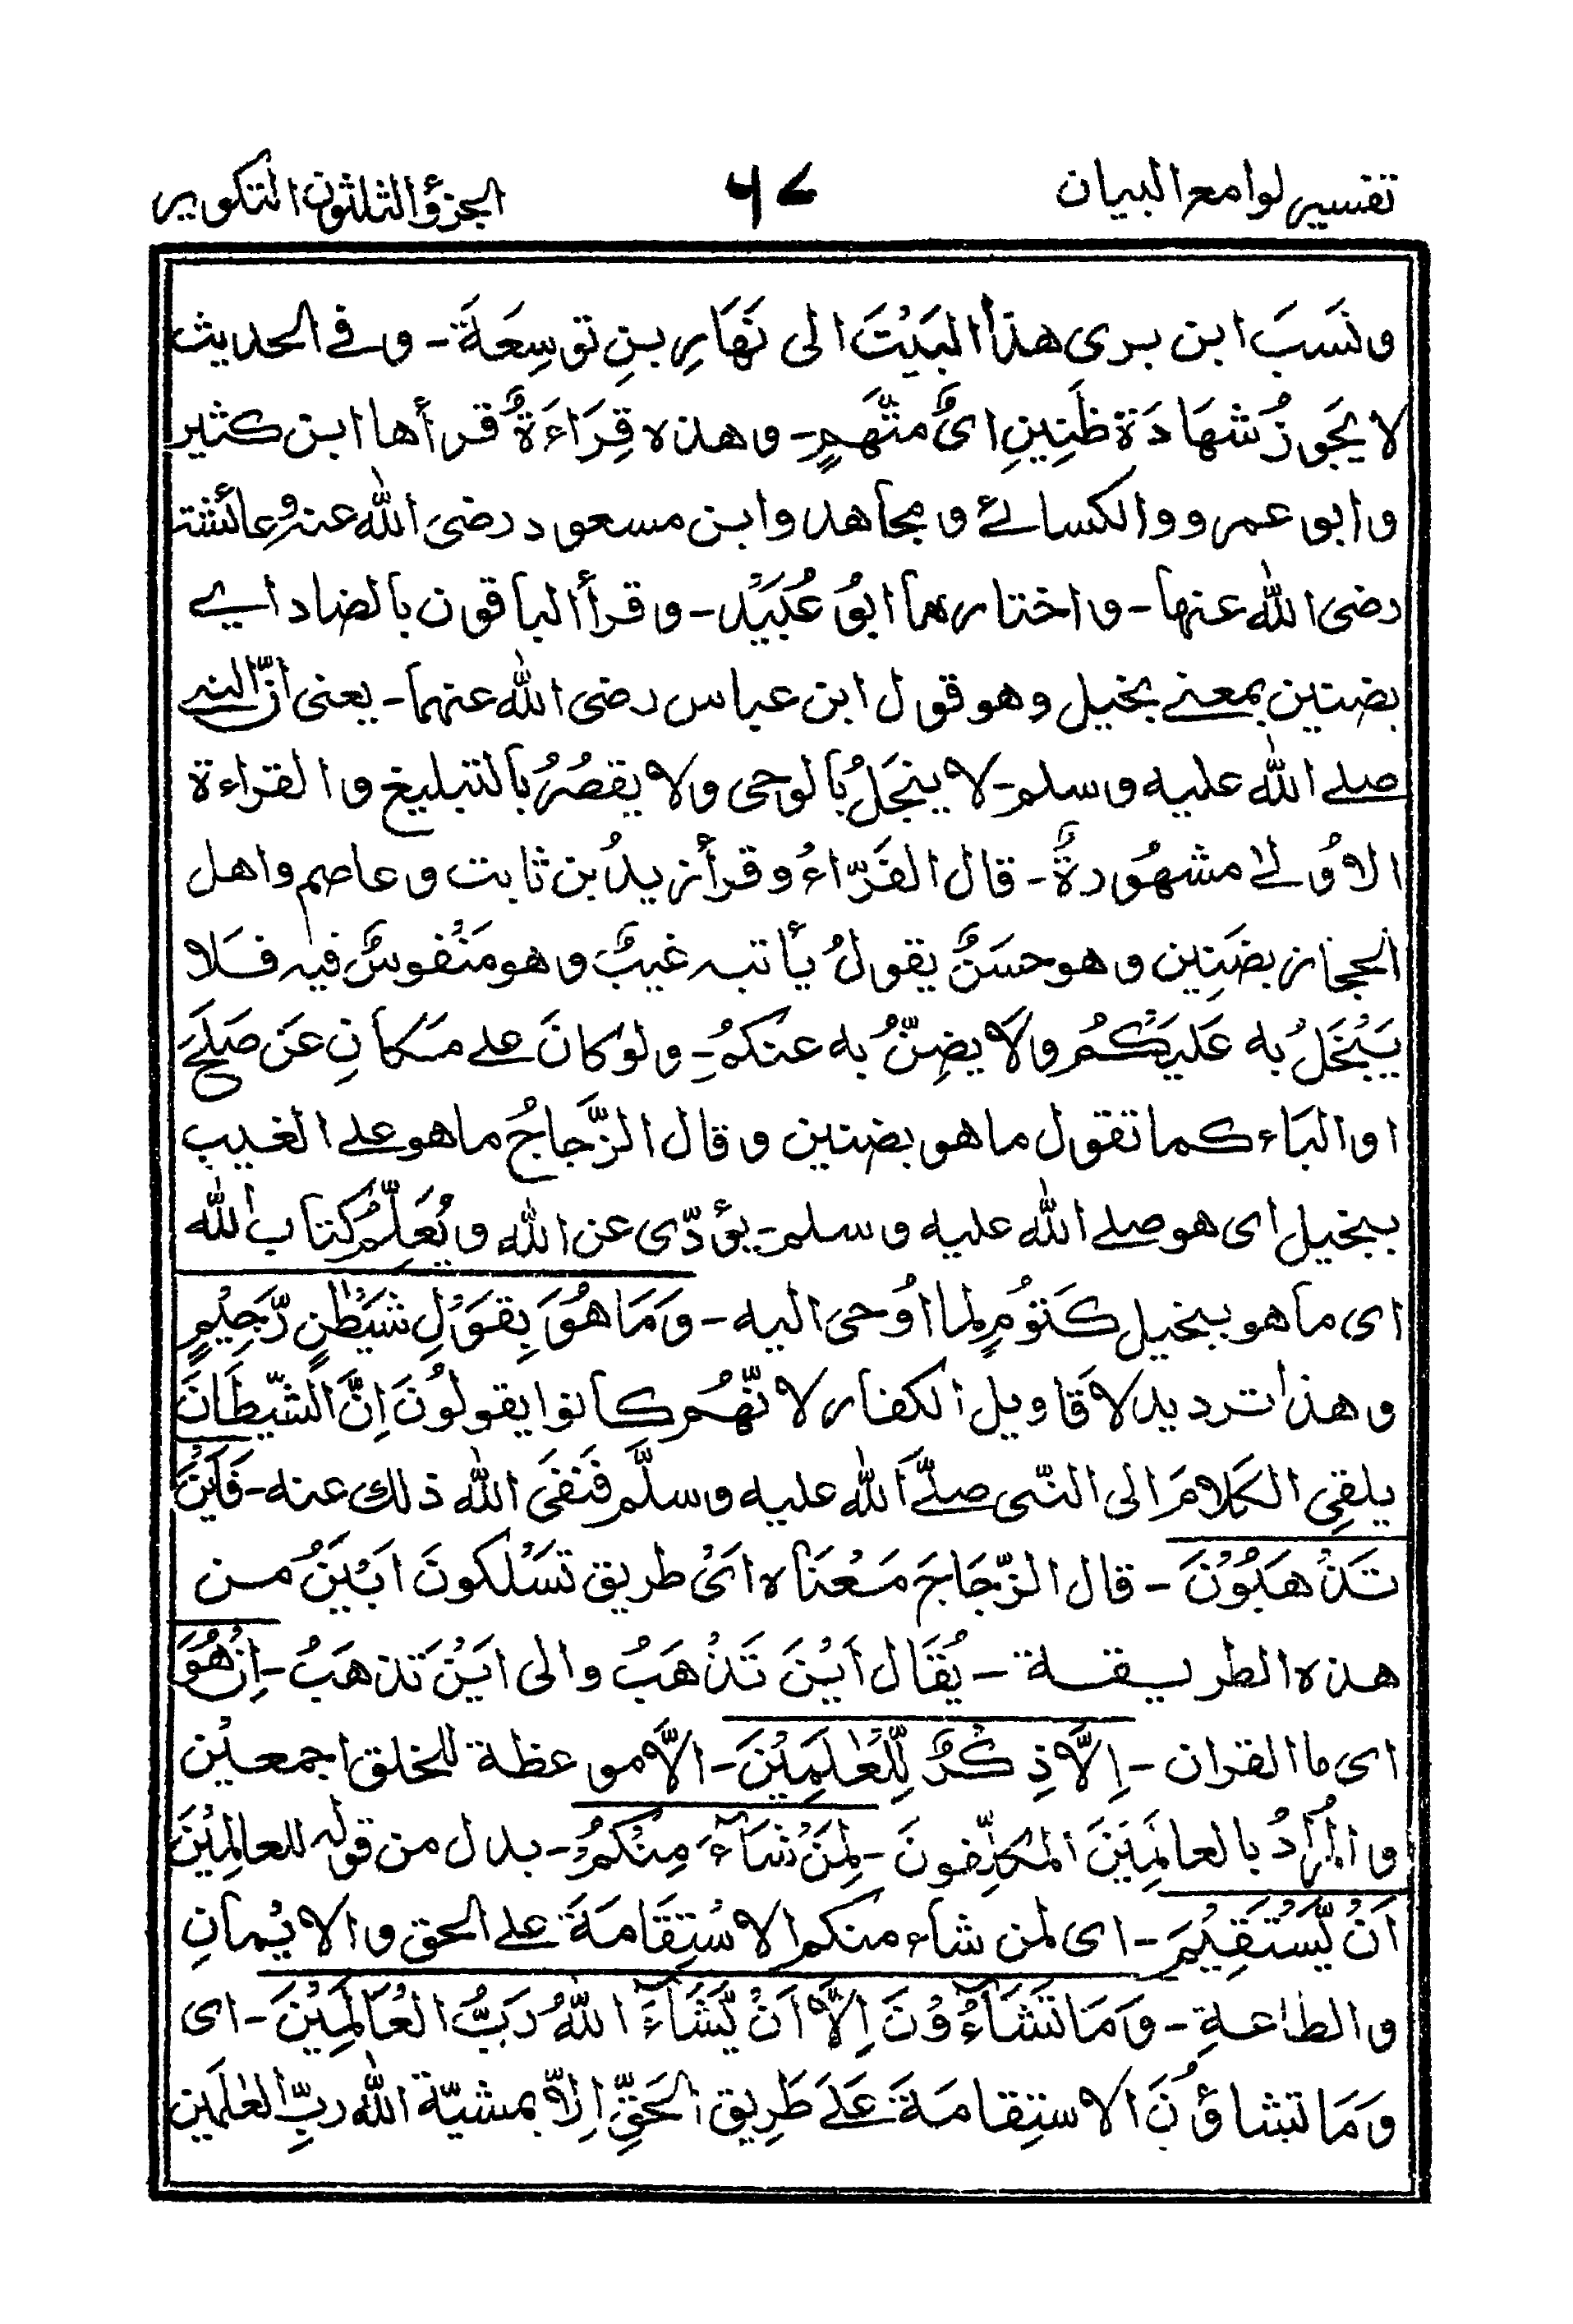 تفسير لوامع البيان ٦٧ الجزؤ الثلثون التكوير
ونَسَبَ ابن برى هذا البَيْتَ الى نَهَارِ بنِ توسِعَةَ - وفے الحديث
لا يَجوزُ شهَادَة ظَنِينٍ اىْ متَّهَمٍ - وهذه قِرَاءَةٌ قرأها ابن كثير
وابو عمرو والكسائے ومجاهد وابن مسعود رضى الله عنه وعائشة
رضى الله عنها - واختارهما ابوُ عُبَيْد - وقرأ الباقون بالضاد اے
بضنين بمعنے بخيل وهو قول ابن عباس رضى الله عنهما - يعنى انّ النبے
صلے الله عليه وسلم - لا يبخَلُ بالوحى ولا يقصُرُ بالتبليغ والقراءة
الاوُلےٰ مشهوُرةٌ - قال الفَرّاءُ وقرأ زيدُ بن ثابت وعاصم واهل
الحجاز بضَنِين وهو حسَنٌ يقولُ يأتيه غيبٌ وهو مَنْفوسٌ فيه فلا
يَبْخَلُ به عَليْكُمُ ولا يضِنُّ به عنكمُ - ولو كانَ علے مكانِ عَن صَلحَ
او البَاء كما تقول ما هو بضنين وقال الزَّجاجُ ما هو علے الغيب
ببخيل اى هو صلے الله عليه وسلم - يؤدّى عن الله ويُعَلِّمُ كتاب الله
اى ما هو ببخيل كَتوُمٍ لما اوُحى اليه - وَمَا هُوَ بِقَوْلِ شَيْطٰنٍ رَّجِيْمٍ
وهذا ترديد لاقاويل الكفار لانّهُم كانوا يقولوُنَ اِنَّ الشّيطَانَ
يلقِى الكلامَ الى النّبى صلَّے الله عليه وسلَّم فَنَفَى الله ذلك عنه - فَاَيْنَ
تَذْهَبُوْنَ - قال الزّجَاجَ مَعْنَاه اىْ طريق تَسْلكونَ ابْيَنُ من
هذه الطريقة - يُقَال اَيْنَ تَذْهَبُ والى ايَنْ تذهَبُ - اِنْ هُوَ
اى ما القران - اِلَّا ذِكْرٌ لِّلْعٰلَمِيْنَ - الَّا موعظة للخلق اجمعيْن
والمُرادُ بالعالَمِيَن المكلّفونَ - لِمَنْ شَآءَ مِنْكُمْ - بدل من قوله للعالِميْنَ
اَنْ يَّسْتَقِيْمَ - اى لمن شاء منكم الاسْتِقَامَةَ علے الحق والايْمانِ
والطاعةِ - وَمَا تَشَآءُوْنَ اِلَّا اَنْ يَّشَآءَ اللهُ رَبُّ الْعَالَمِيْنَ - اى
وَمَا تشاؤُنَ الاستِقامَةَ عَلَے طَرِيق الحَقِّ اِلّا بمشيّة الله ربِّ العٰلمَين